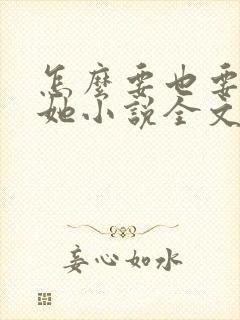 怎麼要也要
她小說全文
妄心如水